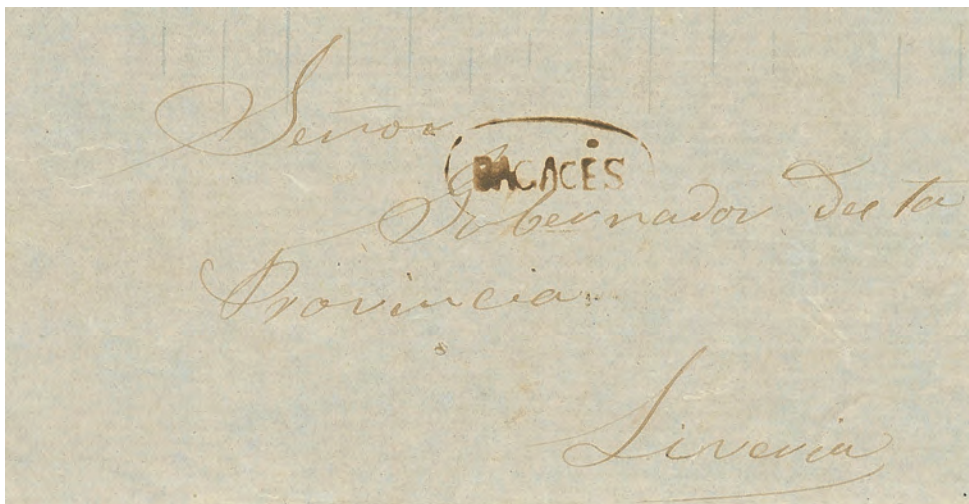 Señor
BAGACÉS
Gobernador des ta
Provincia.
Liveria